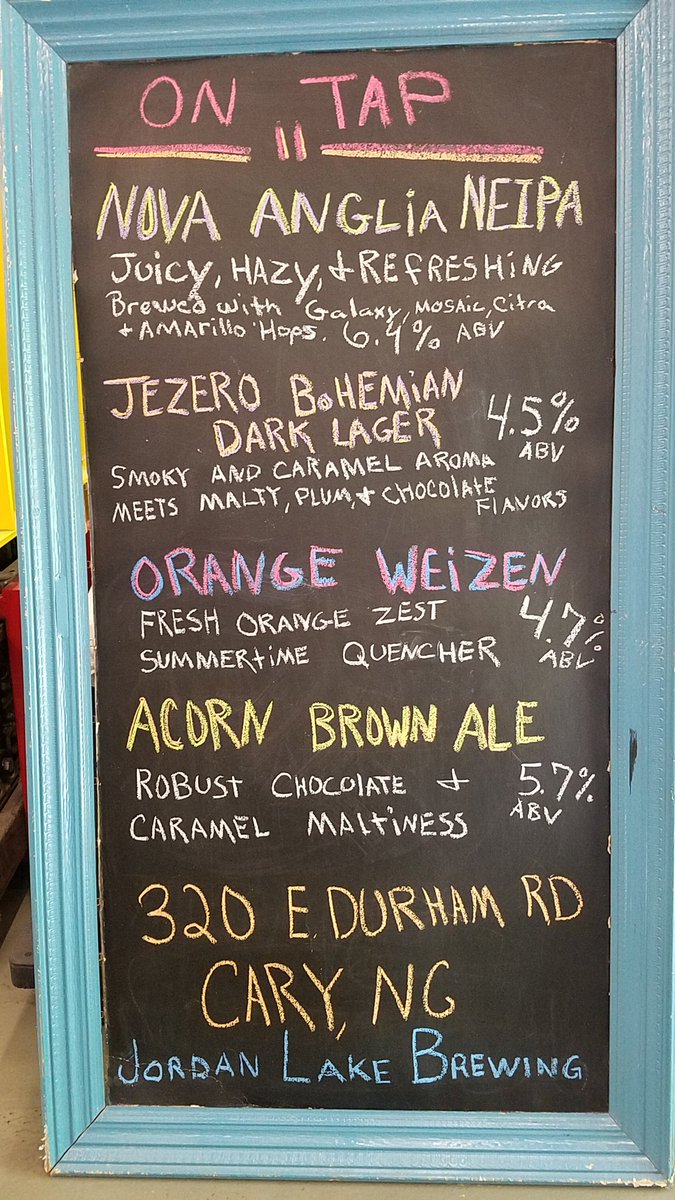 ON TAP
NOVA ANGLIA NEIPA
JUICY, HAZY, + REFRESHING
Brewed with Galaxy, MOSAIC, Citra
+ AMARILLO Hops. 6.4% ABV
JEZERO BOHEMIAN
DARK LAGER 4.5%
ABV
SMOKY AND CARAMEL AROMA
MEETS MALTY, PLUM, + CHOCOLATE
FLAVORS
ORANGE WEIZEN
FRESH ORANGE ZEST 4.7%
SUMMERTIME QUENCHER ABV
ACORN BROWN ALE
ROBUST CHOCOLATE + 5.7%
CARAMEL MALTINESS ABV
320 E. DURHAM RD
CARY, NC
JORDAN LAKE BREWING